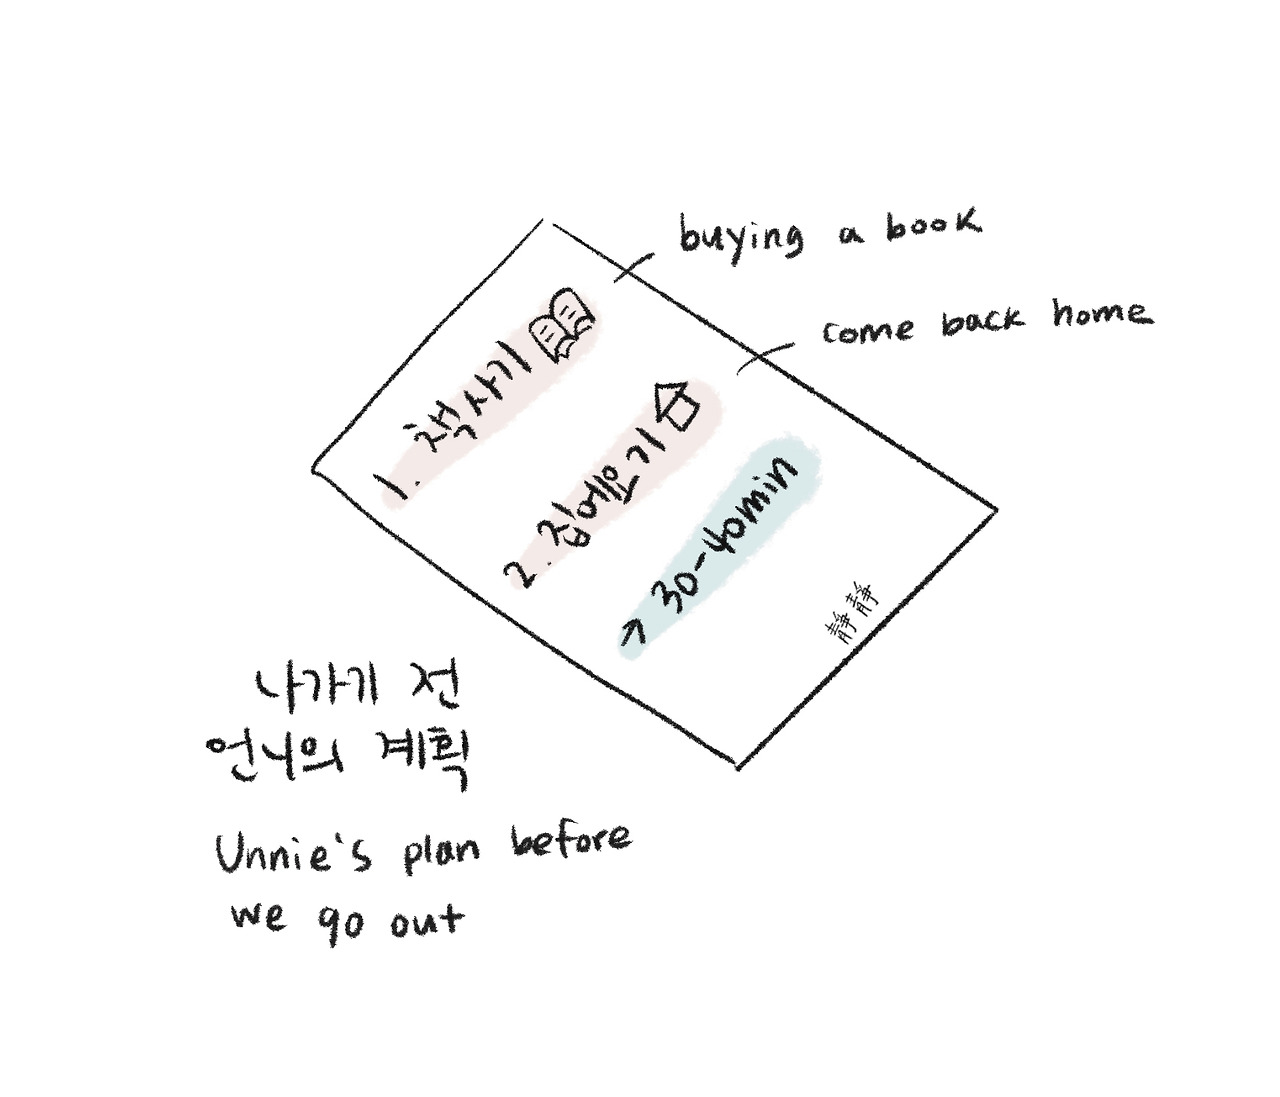 buying a book
come back home
1. 책사기
2. 집에오기
→ 30-40min
静静
나가기 전
언니의 계획
Unnie's plan before
we go out